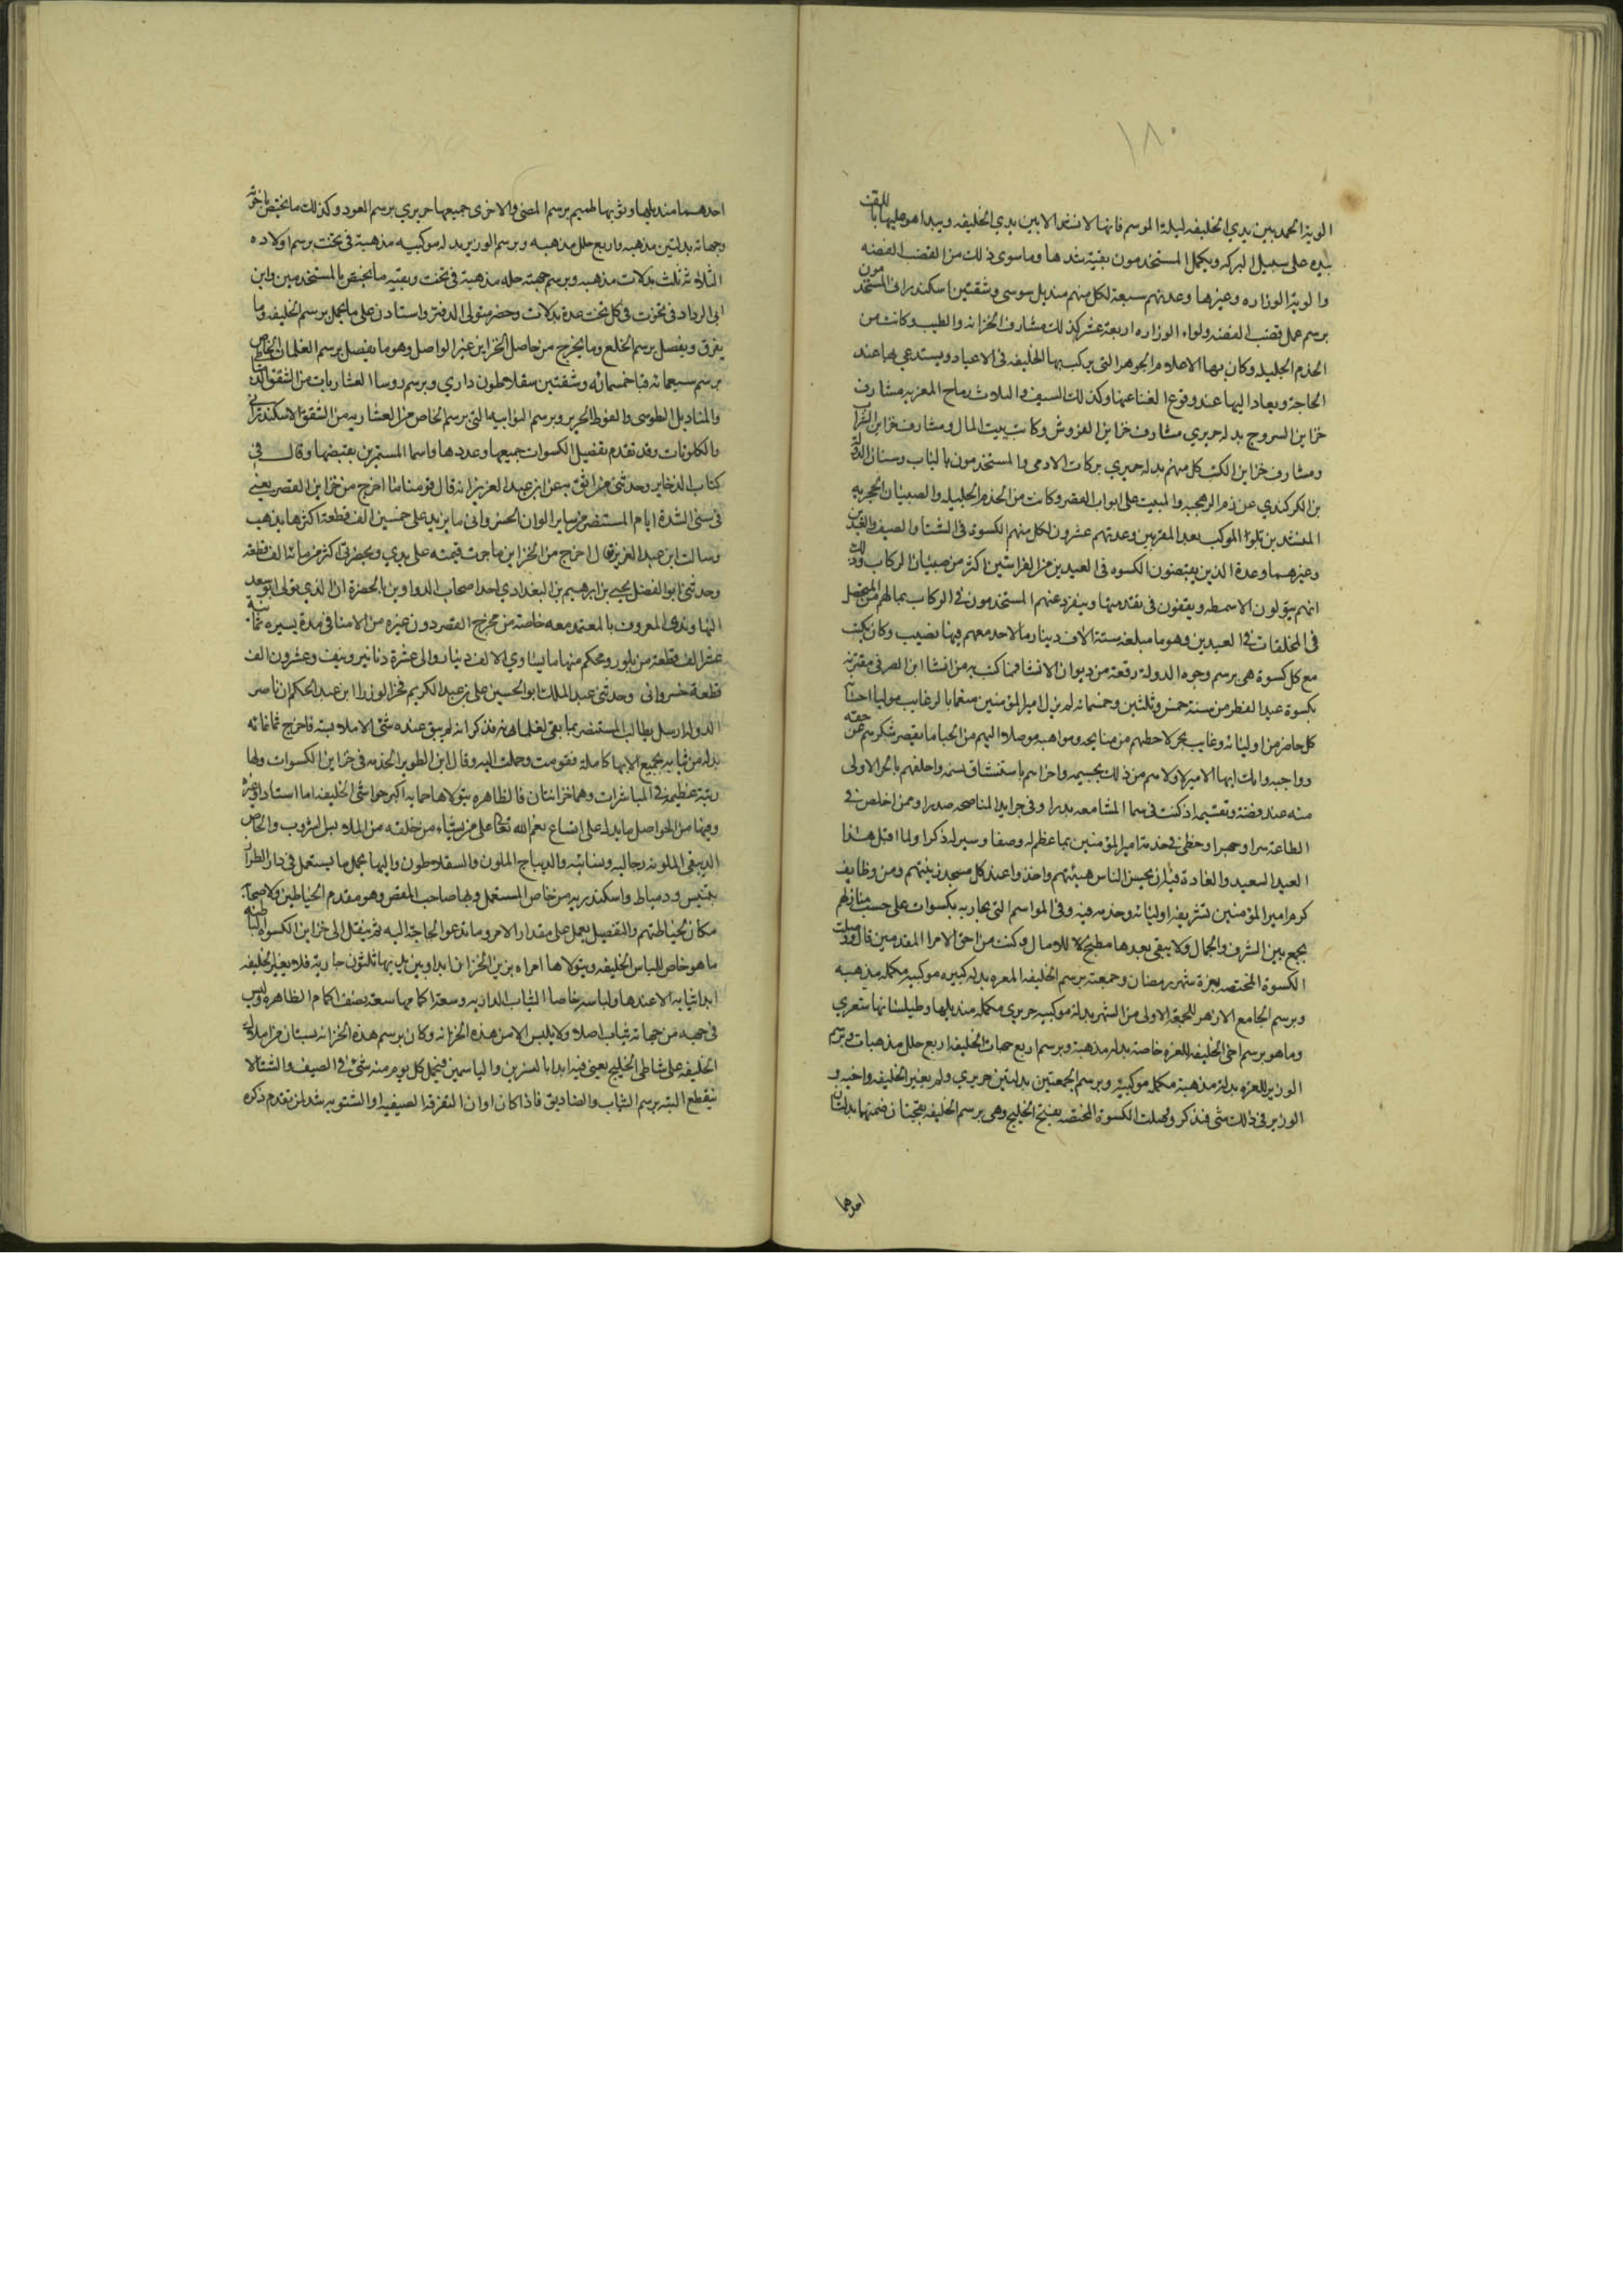 ١٨٠
الوية الحمد بين يدي الخليفة ليلة الموسم فانها لا تشد الا بين يدي الخليفه ويبدا هو عليها باللفت
بيده على سبيل البركه ويكمل المستخدمون بقية شدها وما سوى ذلك من القضب الفضه
والوية الوزاره وغيرها وعدتهم سبعة لكل منهم منديل سوسى وشقتين اسكندرانى المستخدمون
برسم حمل قضب الفضه ولواء الوزاره اربعة عشر كذلك مشارف الخزانه والطيب وكانت من
الخدم الجليله وكان بها الاعلام الجوهر التى يركب بها الخليفه فى الاعياد ويستدعي بها عند
الحاجة ويعاد اليها عند وقوع الغنا عنها وكذلك السيف والثلاث رماح المعزيه مشارف
خزاين السروج بدله حريري مشارف خزاين الفروش وكاتب بيت المال ومشارف خزاين الشراب
ومشارف خزاين الكتب كل منهم بدله حريري بركات الادمى والمستخدمون بالباب وسنان الدوله
بن الكركندي عن زم الرهجيه والمبيت على ابواب القصر وكانت من الخدم الجليله والصبيان الحجريه
المشتدين بلواء الموكب بعد المقربين وعدتهم عشرون لكل منهم الكسوة فى الشتا والصيف والعيدين
وغيرهما وعدة الذين يقبضون الكسوه فى العيدين من الفراشين اكثر من صبيان الركاب وذلك
انهم يتولون الاسمطه ويقفون فى تقدمتها وينفرد عنهم المستخدمون فى الركاب بما لهم من المتحصل
فى المخلفات فى العيدين وهو ما مبلغه ستة الاف دينار ما لاحد معهم فيها نصيب وكان يكتب
مع كل كسوة هى برسم وجوه الدولة رقعة من ديوان الانشا فما كتب به من انشا ابن الصرفى مقترنه
بكسوة عيد الفطر من سنة خمس وثلثين وخمسمائه لم يزل امير المؤمنين منعما بالرغايب موليا احسانه
كل حاضر من اوليائه وغايب مجزلا حظهم من منايحه ومواهبه موصلا اليهم من الحبا ما يقصر شكرهم عن حقه
وواجبه وانك ايها الامير لاولاهم من ذلك بجسيمه واحراهم باستنشاق نسيمه واخلقهم بالجزا لاولى
منه عند فضه وتقسيمه اذ كنت فى سما المسابقه بدرا وفى جرايد المناصحه صدرا وممن اخلص فى
الطاعه سرا وجهرا وحظى فى خدمة امير المؤمنين بما عظم له وصفا وسير له ذكرا ولما اقبل هذا
العيد السعيد والعادة فيه ان يحسن الناس هيئتهم وياخذوا عند كل مسجد زينتهم ومن وظايف
كرم امير المؤمنين تشريفه اوليائه وخدمه فيه وفى المواسم التى تجاريه بكسوات على حسب منازلهم
تجمع بين الشرف والجمال ولا يبقى بعدها مطمح للامال وكنت من اخص الامرا المقدمين قال ووصلت
الكسوة المختصه بغرة شهر رمضان وجمعته برسم الخليفه للغره بدله كبيره موكبيه مكمله مذهبه
وبرسم الجامع الازهر للجمعة الاولى من الشهر بدلة موكبيه حريري مكمله منديلها وطيلسانها شعري
وما هو برسم اخى الخليفه للغره خاصة بدله مذهبة وبرسم اربع جهات الخليفه اربع حلل مذهبات وبرسم
الوزير للغره بدلة مذهبة مكمله موكبيه وبرسم الجمعتين بدلتين حريري ولم يغير الخليفه واخيه و
الوزير فى ذلك شى فنذكر ووصلت الكسوة المختصه بفتح الخليج وهى برسم الخليفه تختان ضمنها بدلتان
احدهما
احدهما منديلها وثوبها طميم برسم المضى والاخرى جميعها حريري برسم العود وكذلك ما يختص باخوته
وجهاته بدلتين مذهبه واربع حلل مذهبه وبرسم الوزير بدله موكبيه مذهبة فى تخت برسم اولاده
الثلاثه ثلث بدلات مذهبه وبرسم جهته حله مذهبة فى تخت وبقيه ما يختص بالمستخدمين وابن
ابى الرداد فى تخوت فى كل تخت عدة بدلات وحضر متولى الدفتر واستاذن على ما يحمل برسم الخليفه وما
يفرق ويفصل برسم الخلع وما يخرج من حاصل الخزاين غير الواصل وهو ما يفصل برسم الغلمان الخاص
برسم سبعمائه قبا خمسمائه وشقتين سقلاطون داري وبرسم روسا العشاريات من الشقق الدمياطى
والمناديل السوسى والفوط الحرير وبرسم النواتيه التى برسم الخاص من العشاريه من الشقق الاسكندرانى
والكلوتات وقد تقدم تفصيل الكسوات جميعها وعددها واسما المستمرين بقبضها وقال فى
كتاب الذخاير وحدثنى من اثق به عن ابن عبد العزيز انه قال قومنا ما اخرج من خزاين القصر يعنى
فى سنى الشدة ايام المستنصر من ساير الوان الخسروانى ما يزيد على خمسين الف قطعة اكثرها مذهب
وسالت ابن عبد العزيز فقال اخرج من الخزاين ما حررت قيمته على يدي وبحضرتى اكثر من مائة الف قطعه
وحدثنى ابو الفضل يحيى بن ابرهيم بن البغدادي احد اصحاب الدواوين بالحضرة ان الذي تولى ابو سعيد
النهاوندى المعروف بالمعتمد معه خاصة من مخرج القصر دون غيره من الامنا فى مدة يسيره ثمانية
عشر الف قطعة من بلور ومحكم منها ما يساوي الالف دينار والى عشرة دنانير ونيف وعشرون الف
قطعة خسروانى وحدثنى عبد الملك ابو الحسين على بن عبد الكريم فخر الوزرا ابن عبد الحكم ان ناصر
الدوله ارسل يطالب المستنصر بما بقى لغلمانه فذكر انه لم يبق عنده شى الا ملابسه فاخرج ثمانمائه
بدله من ثيابه بجميع الاتها كاملة فقومت وحملت اليه وقال ابن الطوير الخدمه فى خزاين الكسوات ولها
رتبة عظيمه فى المباشرات وهما خزانتان فالظاهره يتولاها خاصه اكبر حواشى الخليفه اما استاذ او غيره
وفيها من الحواصل ما يدل على اتساع نعم الله تعالى على من يشاء من خلقه من الملابس الشروب والخاص
الدبيقى الملونه رجاليه ونسائيه والديباج الملون والسقلاطون واليها يحمل ما يستعمل فى دار الطراز
بتنيس ودمياط واسكندريه من خاص المستعمل وبها صاحب المقص وهو مقدم الخياطين ولاصحابه
مكان لخياطتهم والتفصيل يعمل على مقدار الامر وما تدعو الحاجة اليه ثم ينقل الى خزاين الكسوه الباطنه
ما هو خاص للباس الخليفه ويتولاها امراه بزين الخزان ابدا وبين يديها ثلثون جارية فلا يغير الخليفه
ابدا ثيابه الا عندها ولباسه خاصا الثياب الداريه وسعة اكمامها سعة نصف اكمام الظاهره وليس
فى جهة من جهاته ثياب اصلا ولا يلبس الا من هذه الخزانه وكان برسم هذه الخزانه بستان من املاك
الخليفه على شاطى الخليج يعنى فيه ابدا بالنسرين والياسمين فيحمل كل يوم منه شى فى الصيف والشتا لا
ينقطع البته برسم الثياب والصناديق فاذا كان اوان التفرقة الصيفيه او الشتويه شد لمن تقدم ذكره